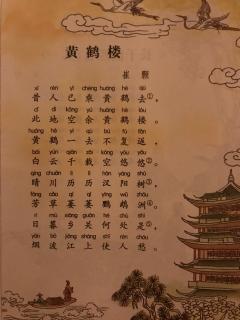 黄鹤楼
崔颢
xī rén yǐ chéng huáng hè qù
昔人已乘黄鹤去，
cǐ dì kōng yú huáng hè lóu
此地空余黄鹤楼。
huáng hè yí qù bú fù fǎn
黄鹤一去不复返，
bái yún qiān zǎi kōng yōu yōu
白云千载空悠悠。
qíng chuān lì lì hàn yáng shù
晴川历历汉阳树，
fāng cǎo qī qī yīng wǔ zhōu
芳草萋萋鹦鹉洲。
rì mù xiāng guān hé chù shì
日暮乡关何处是，
yān bō jiāng shàng shǐ rén chóu
烟波江上使人愁。